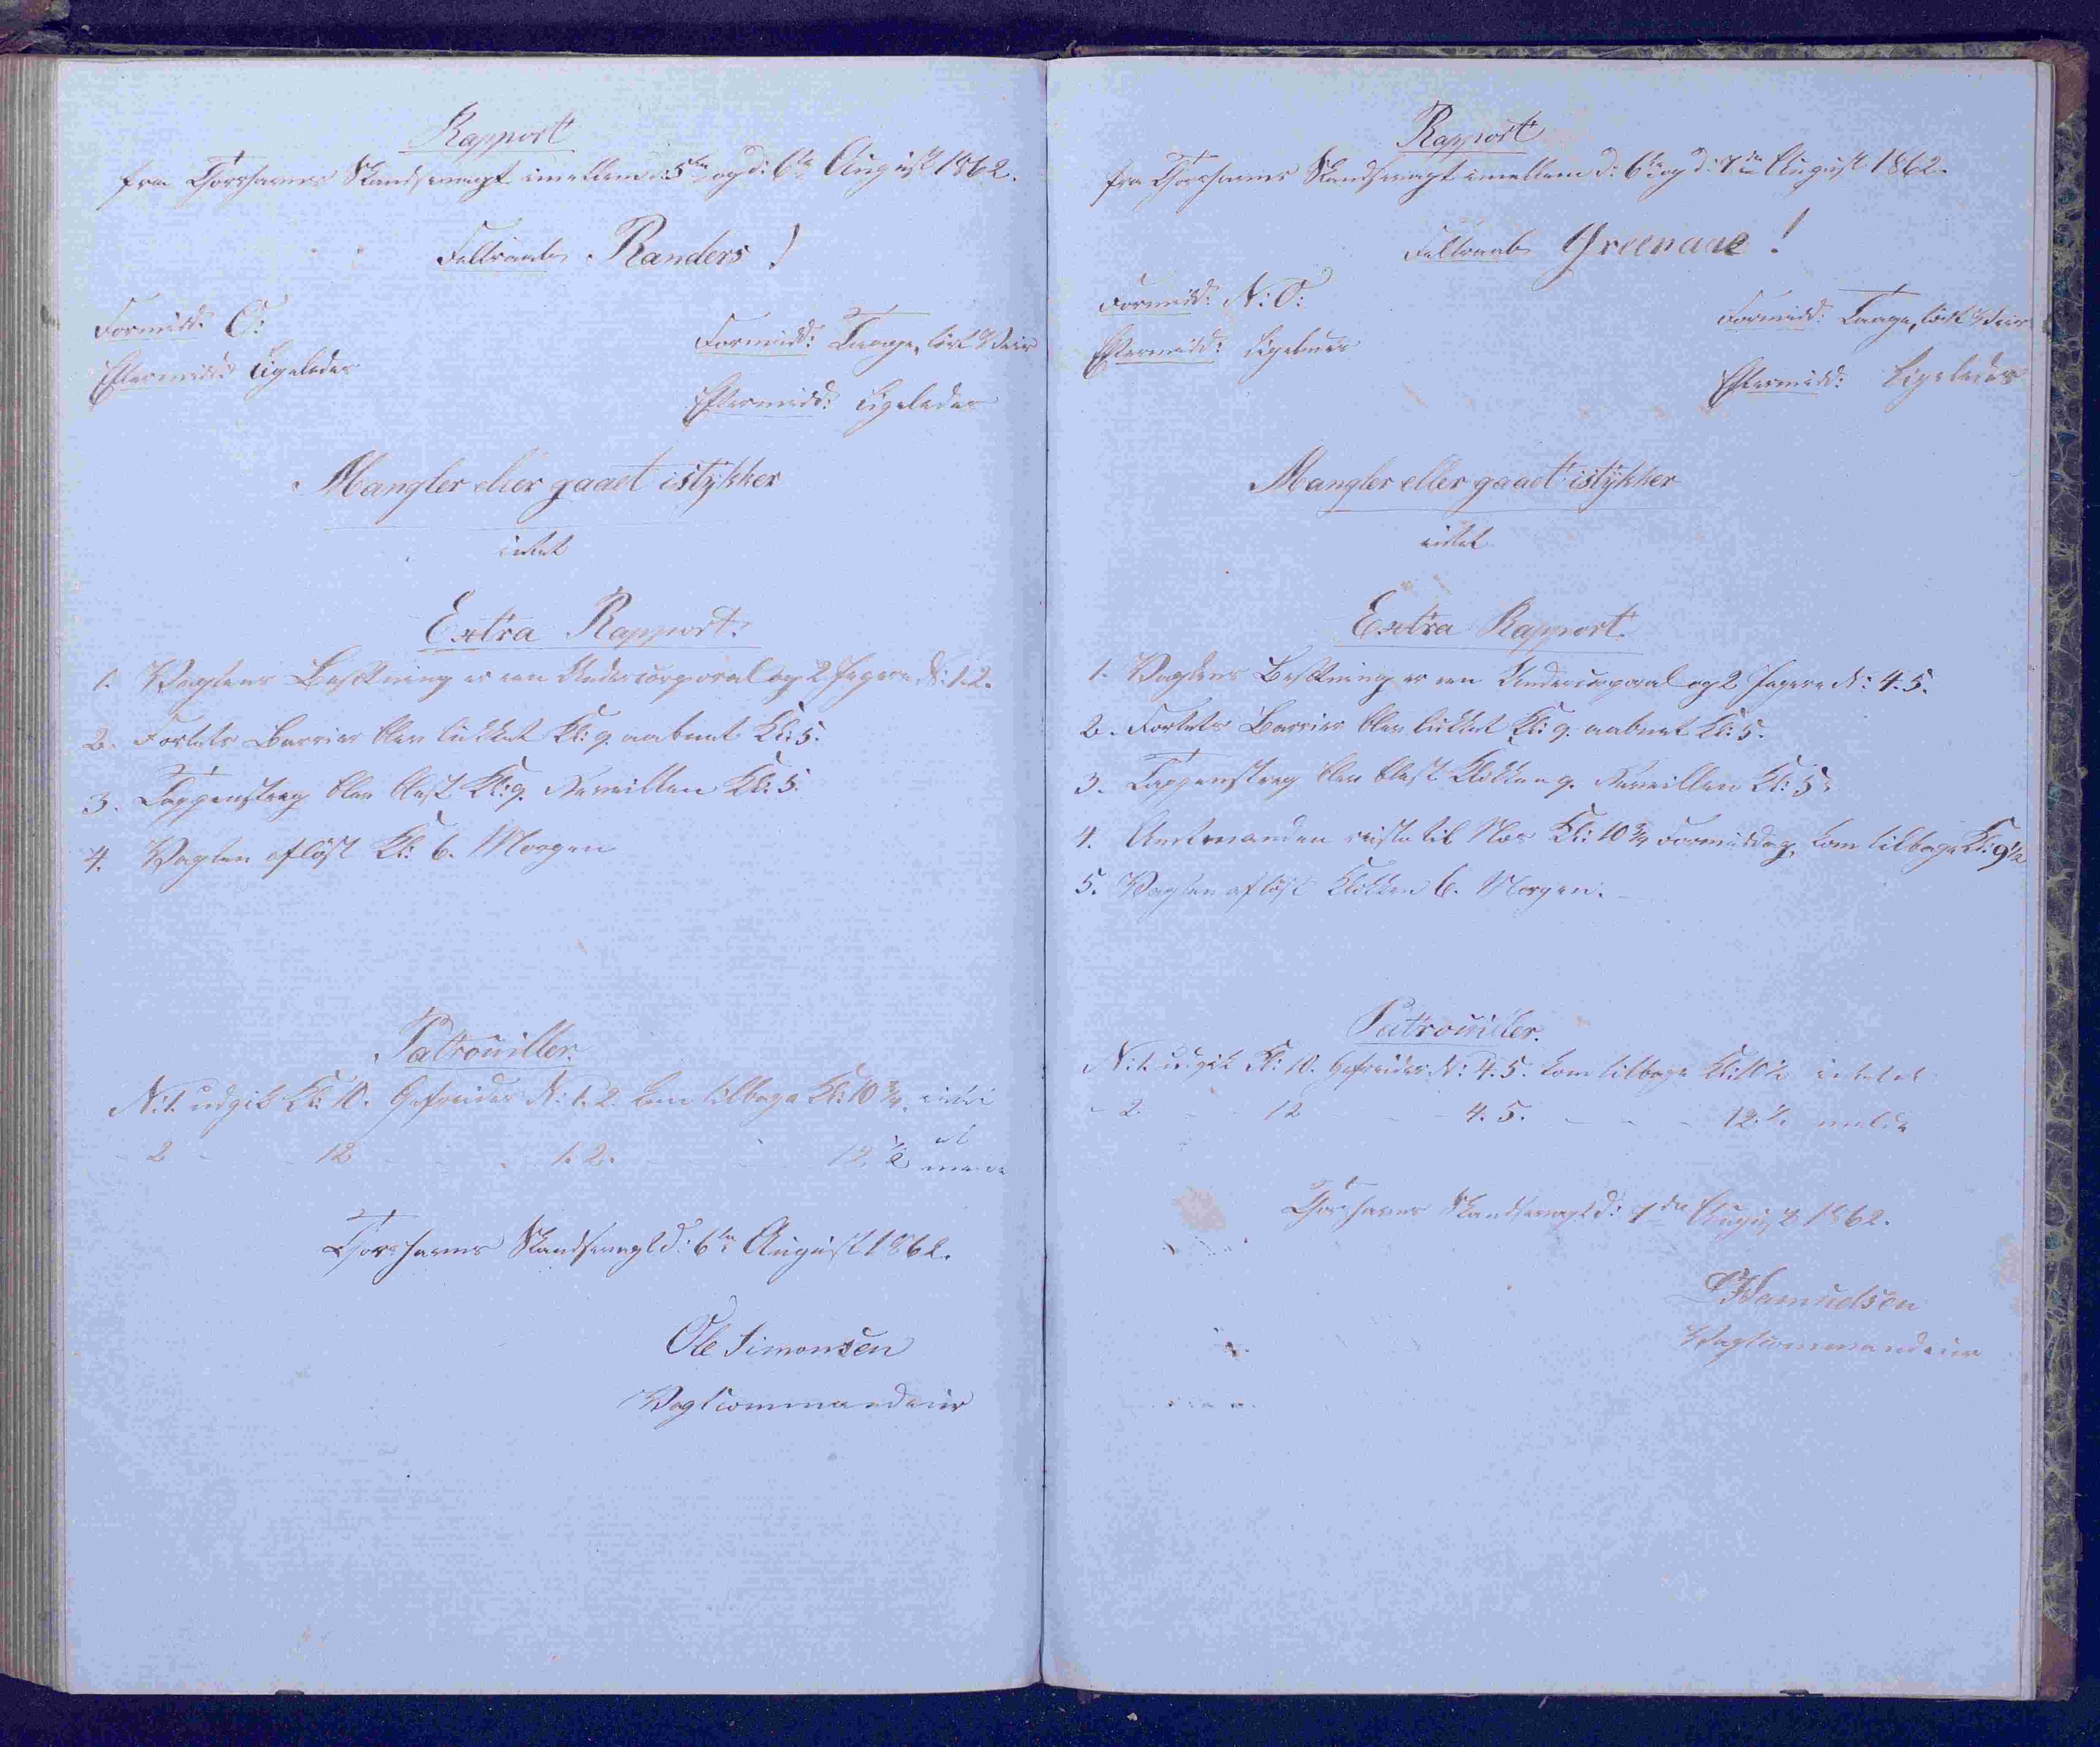 Rapport
fra Thorshavns Skandsevagt imellem d: 5te og d: 6te August 1862.
Feltraab Randers!
Formidd: O:
Eftermidd: Ligeledes
Formidd: Taage, tört Veir
Eftermidd: Ligeledes
Mangler eller gaaet istÿkker
intet
Extra Rapport.
1. Vagtens Besætning er een Undercorporal og 2 Jægere N: 1. 2.
2. Fortets Barrier blev lukket Kl: 9. aabnet Kl: 5.
3. Tappenstreg blev blæst Kl: 9. Reveillen Kl: 5.
4. Vagten aflöst Kl: 6. Morgen
Patrouiller.
N: 1. udgik Kl: 10. Gefreider N: 1. 2. kom tilbage Kl: 10 3/4. intet
at
- 2 - - 12 - - - 1. 2. - - - 12 1/2 melde
Thorshavns Skandsevagt d: 6te August 1862.
Ole Simonsen
Vagtcommandeur
Rapport
fra Thorshavns Skandsevagt imellem d: 6te og d: 7de August 1862.
Feltraab Greenaae!
Formidd: N: O:
Eftermidd: Ligeledes
Formidd: Taage, tört Veir
Eftermidd: Ligeledes
Mangler eller gaaet istÿkker
intet
Extra Rapport.
1. Vagtens Besætning er een Undercorporal og 2 Jægere N: 4. 5.
2. Fortets Barrier blev lukket Kl: 9. aabnet Kl: 5.
3. Tappenstreg blev blæst Klokken 9. Reveillen Kl: 5.
4. Amtmanden reiste til Næs Kl: 10 3/4 Formiddag, kom tilbage Kl: 9 1/2
5. Vagten aflöst Klokken 6. Morgen.
Patrouiller.
N: 1. udgik Kl: 10. Gefreider N: 4. 5. kom tilbage Kl: 10 1/2 intet at
- 2. - - 12 - - - 4. 5. - - - 12 1/2 melde
Thorshavns Skandsevagt d: 7de August 1862.
Samuelsen
Vagtcommandeur